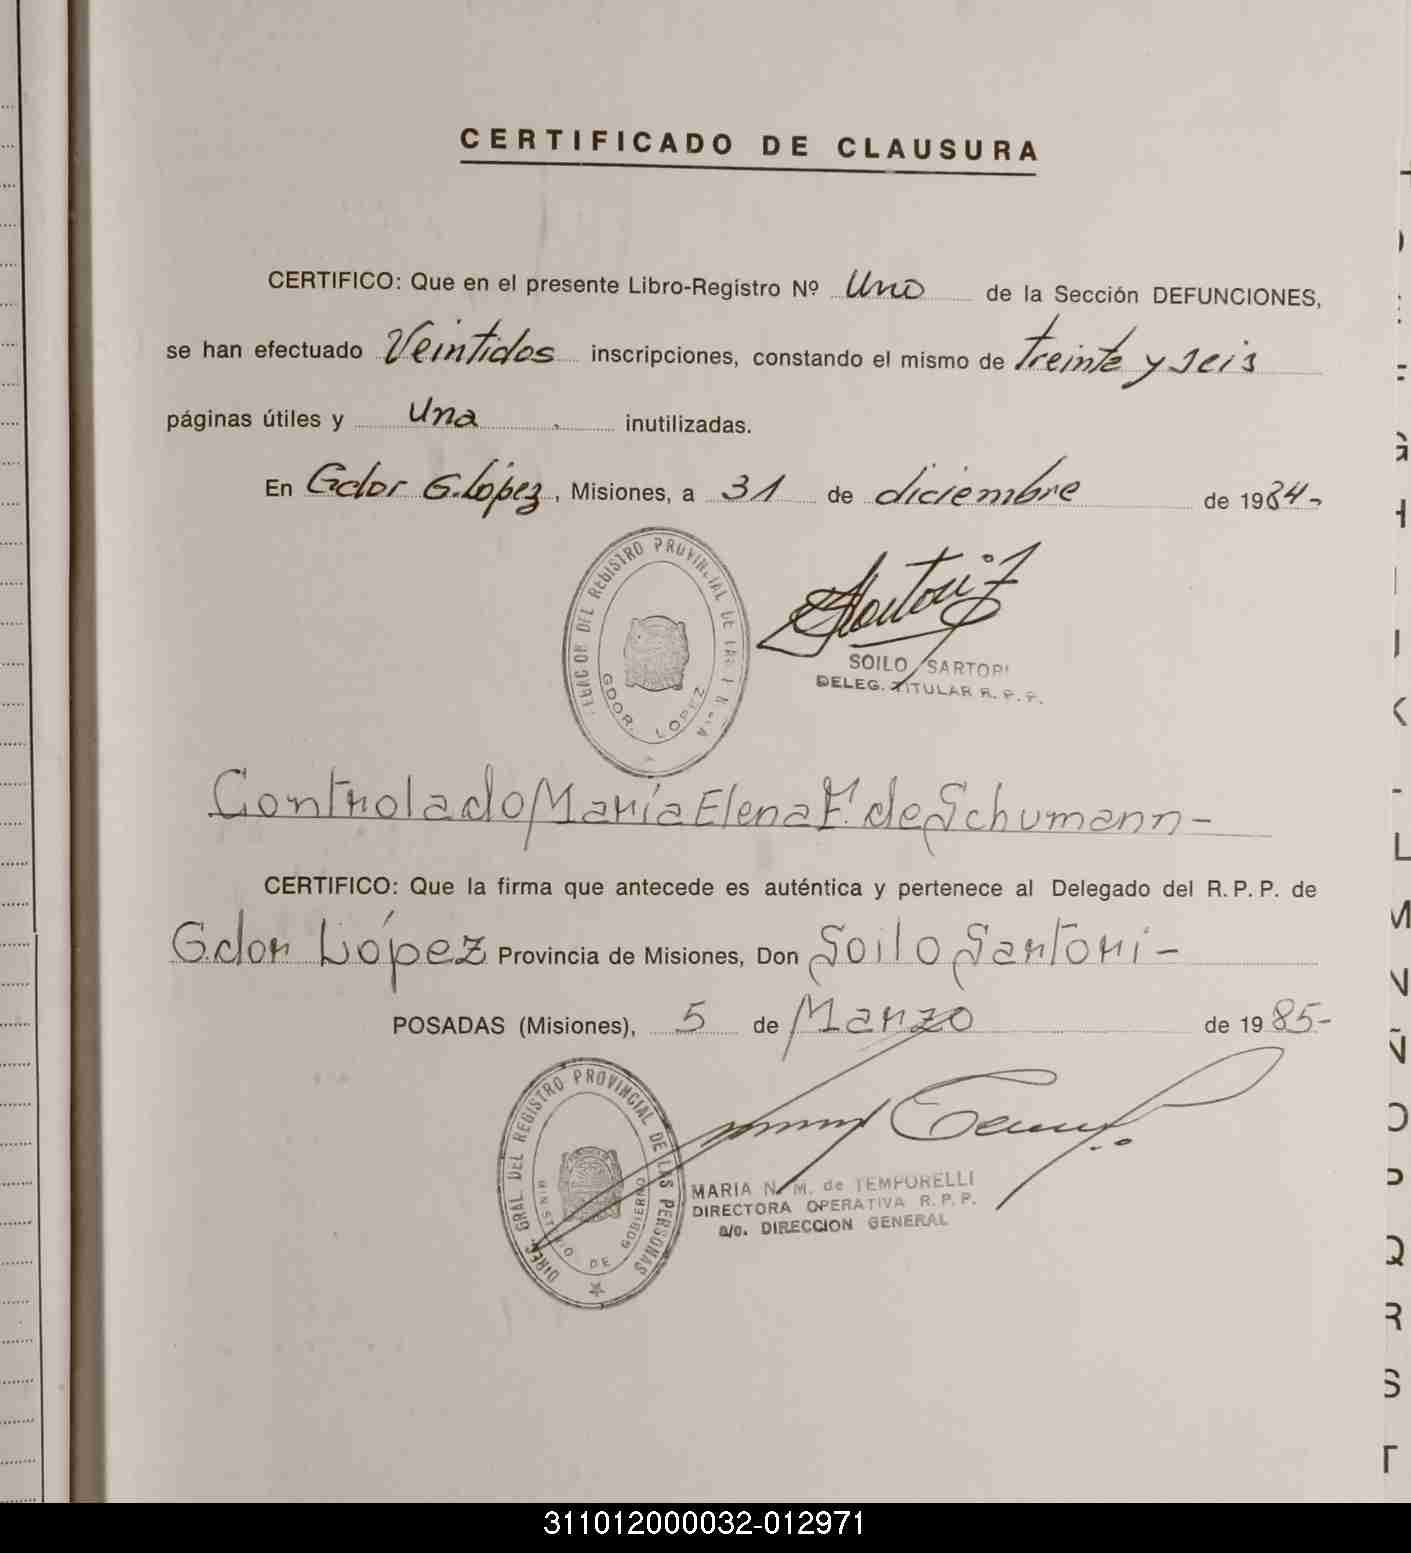 CERTIFICADO DE CLAUSURA
CERTIFICO: Que en el presente Libro-Registro Nº Uno de la Sección DEFUNCIONES,
se han efectuado Veintidos inscripciones, constando el mismo de treinta y seis
páginas útiles y una inutilizadas.
En Gdor G. López, Misiones, a 31 de diciembre de 1984-
DEL REGISTRO PROVINCIAL DE LAS
GDOR. LOPEZ
SOILO SARTORI
DELEG. TITULAR R. P. P.
Controlado María Elena F. de Schumann-
CERTIFICO: Que la firma que antecede es auténtica y pertenece al Delegado del R. P. P. de
Gdor López Provincia de Misiones, Don Soilo Sartori-
POSADAS (Misiones), 5 de Marzo de 1985-
DIREC. GRAL. DEL REGISTRO PROVINCIAL DE LAS PERSONAS
MINISTERIO DE GOBIERNO
MARIA N. M. de TEMPORELLI
DIRECTORA OPERATIVA R. P. P.
a/c. DIRECCION GENERAL
G
H
I
J
K
L
M
N
Ñ
O
P
Q
R
S
T
311012000032-012971